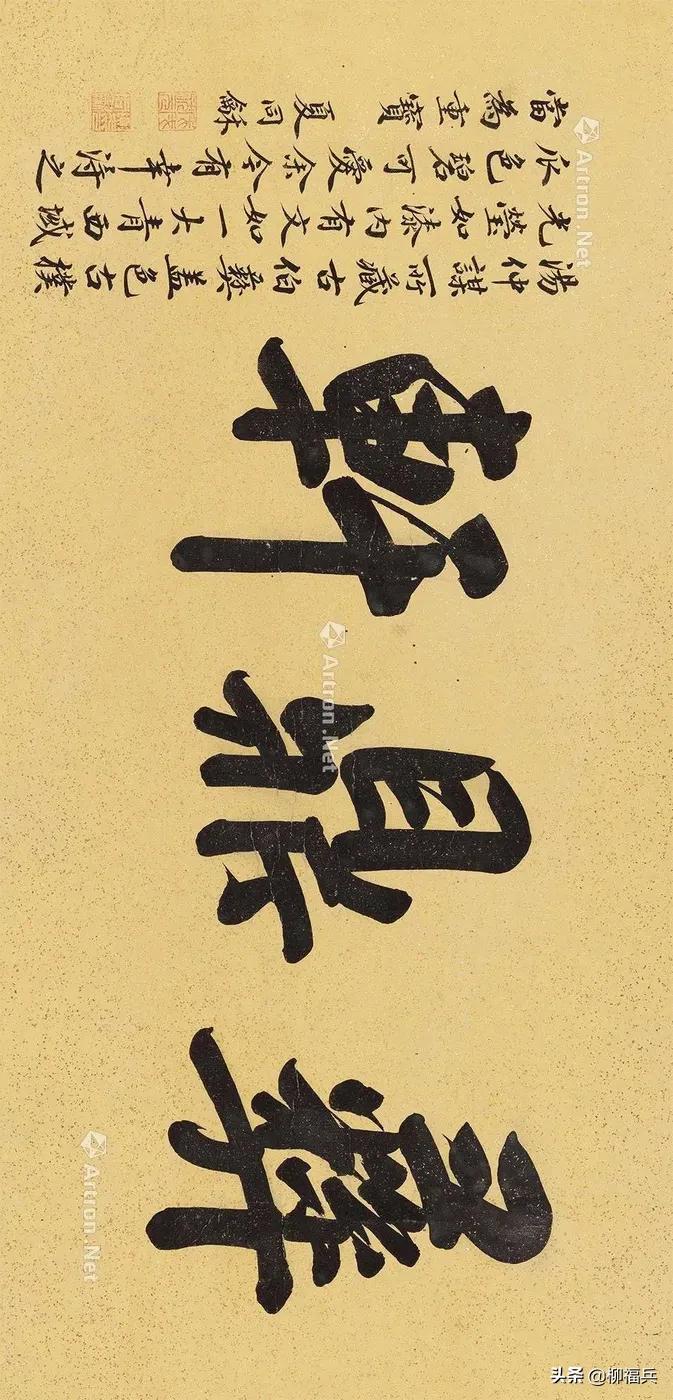 彝鼎軒
湯仲謀所藏古伯彝蓋色古樸
光瑩如漆内有文如一大青西域
色碧可愛余今有幸得之
當為重寶 夏同龢
Artron.Net
Artron.Net
Artron.Net
头条 @柳福兵